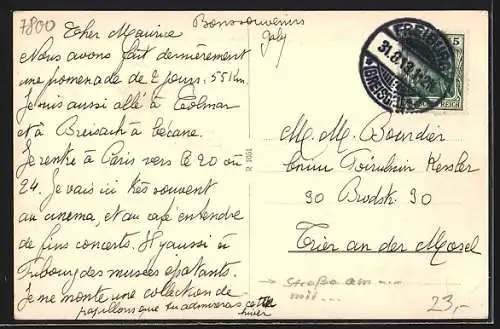 7800
Bons souvenirs
Gaby
Cher Maurice
Nous avons fait dernièrement
une promenade de 2 jours: 55 Km.
Je suis aussi allé à Colmar
et à Breisach à bécane.
Je rentre à Paris vers le 20 ou
24. Je vais ici très souvent
au cinéma, et au café entendre
de fins concerts. Il y aussi à
Fribourg des musées épatants.
Je me monte une collection de
papillons que tu admireras cette
hiver
FREIBURG
31.8.13
(BREISGAU)
5
REICH
M. M. Bourdier
beim
Kessler
90 Brodstr. 90
Trier an der Mosel
Straße am
23,-